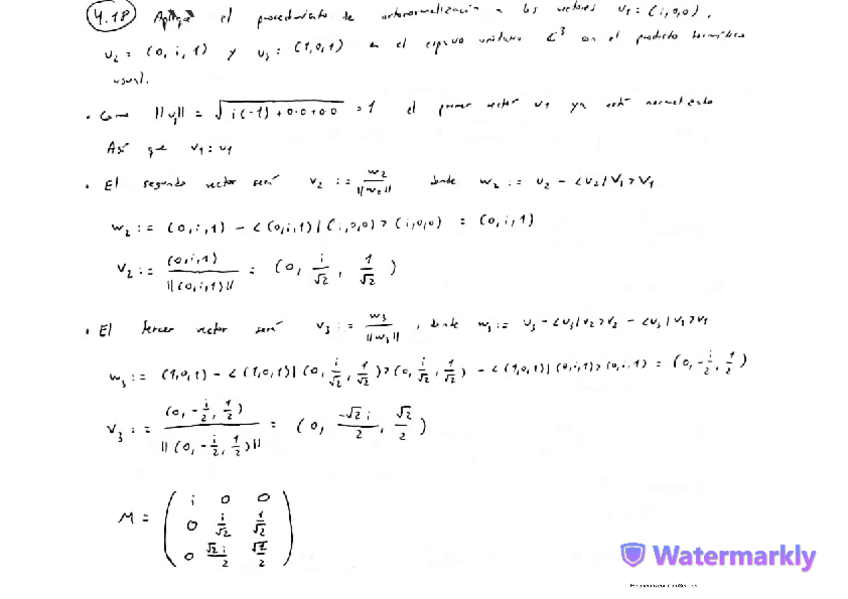 4.18 Aplíquese el procedimiento de ortonormalización a los vectores u₁ = (i,0,0),
u₂ = (0, i, 1) y u₃ = (1,0,1) en el espacio unitario ℂ³ con el producto hermítico
usual.
· Como ||u₁|| = √(i(-i) + 0·0 + 0·0) = 1 el primer vector u₁ ya está normalizado
Así que v₁ = u₁
· El segundo vector será v₂ := w₂/||w₂|| donde w₂ := u₂ - <u₂|v₁>v₁
w₂ := (0,i,1) - <(0,i,1)|(i,0,0)>(i,0,0) = (0,i,1)
v₂ := (0,i,1)/||(0,i,1)|| = (0, i/√2, 1/√2)
· El tercer vector será v₃ := w₃/||w₃||, donde w₃ := u₃ - <u₃|v₂>v₂ - <u₃|v₁>v₁
w₃ := (1,0,1) - <(1,0,1)|(0, i/√2, 1/√2)>(0, i/√2, 1/√2) - <(1,0,1)|(0,i,1)>(0,i,1) = (0, -i/2, 1/2)
v₃ := (0, -i/2, 1/2)/||(0, -i/2, 1/2)|| = (0, -√2 i/2, √2/2)
M = ( i 0 0
0 i/√2 1/√2
0 √2 i/2 √2/2 )
Watermarkly